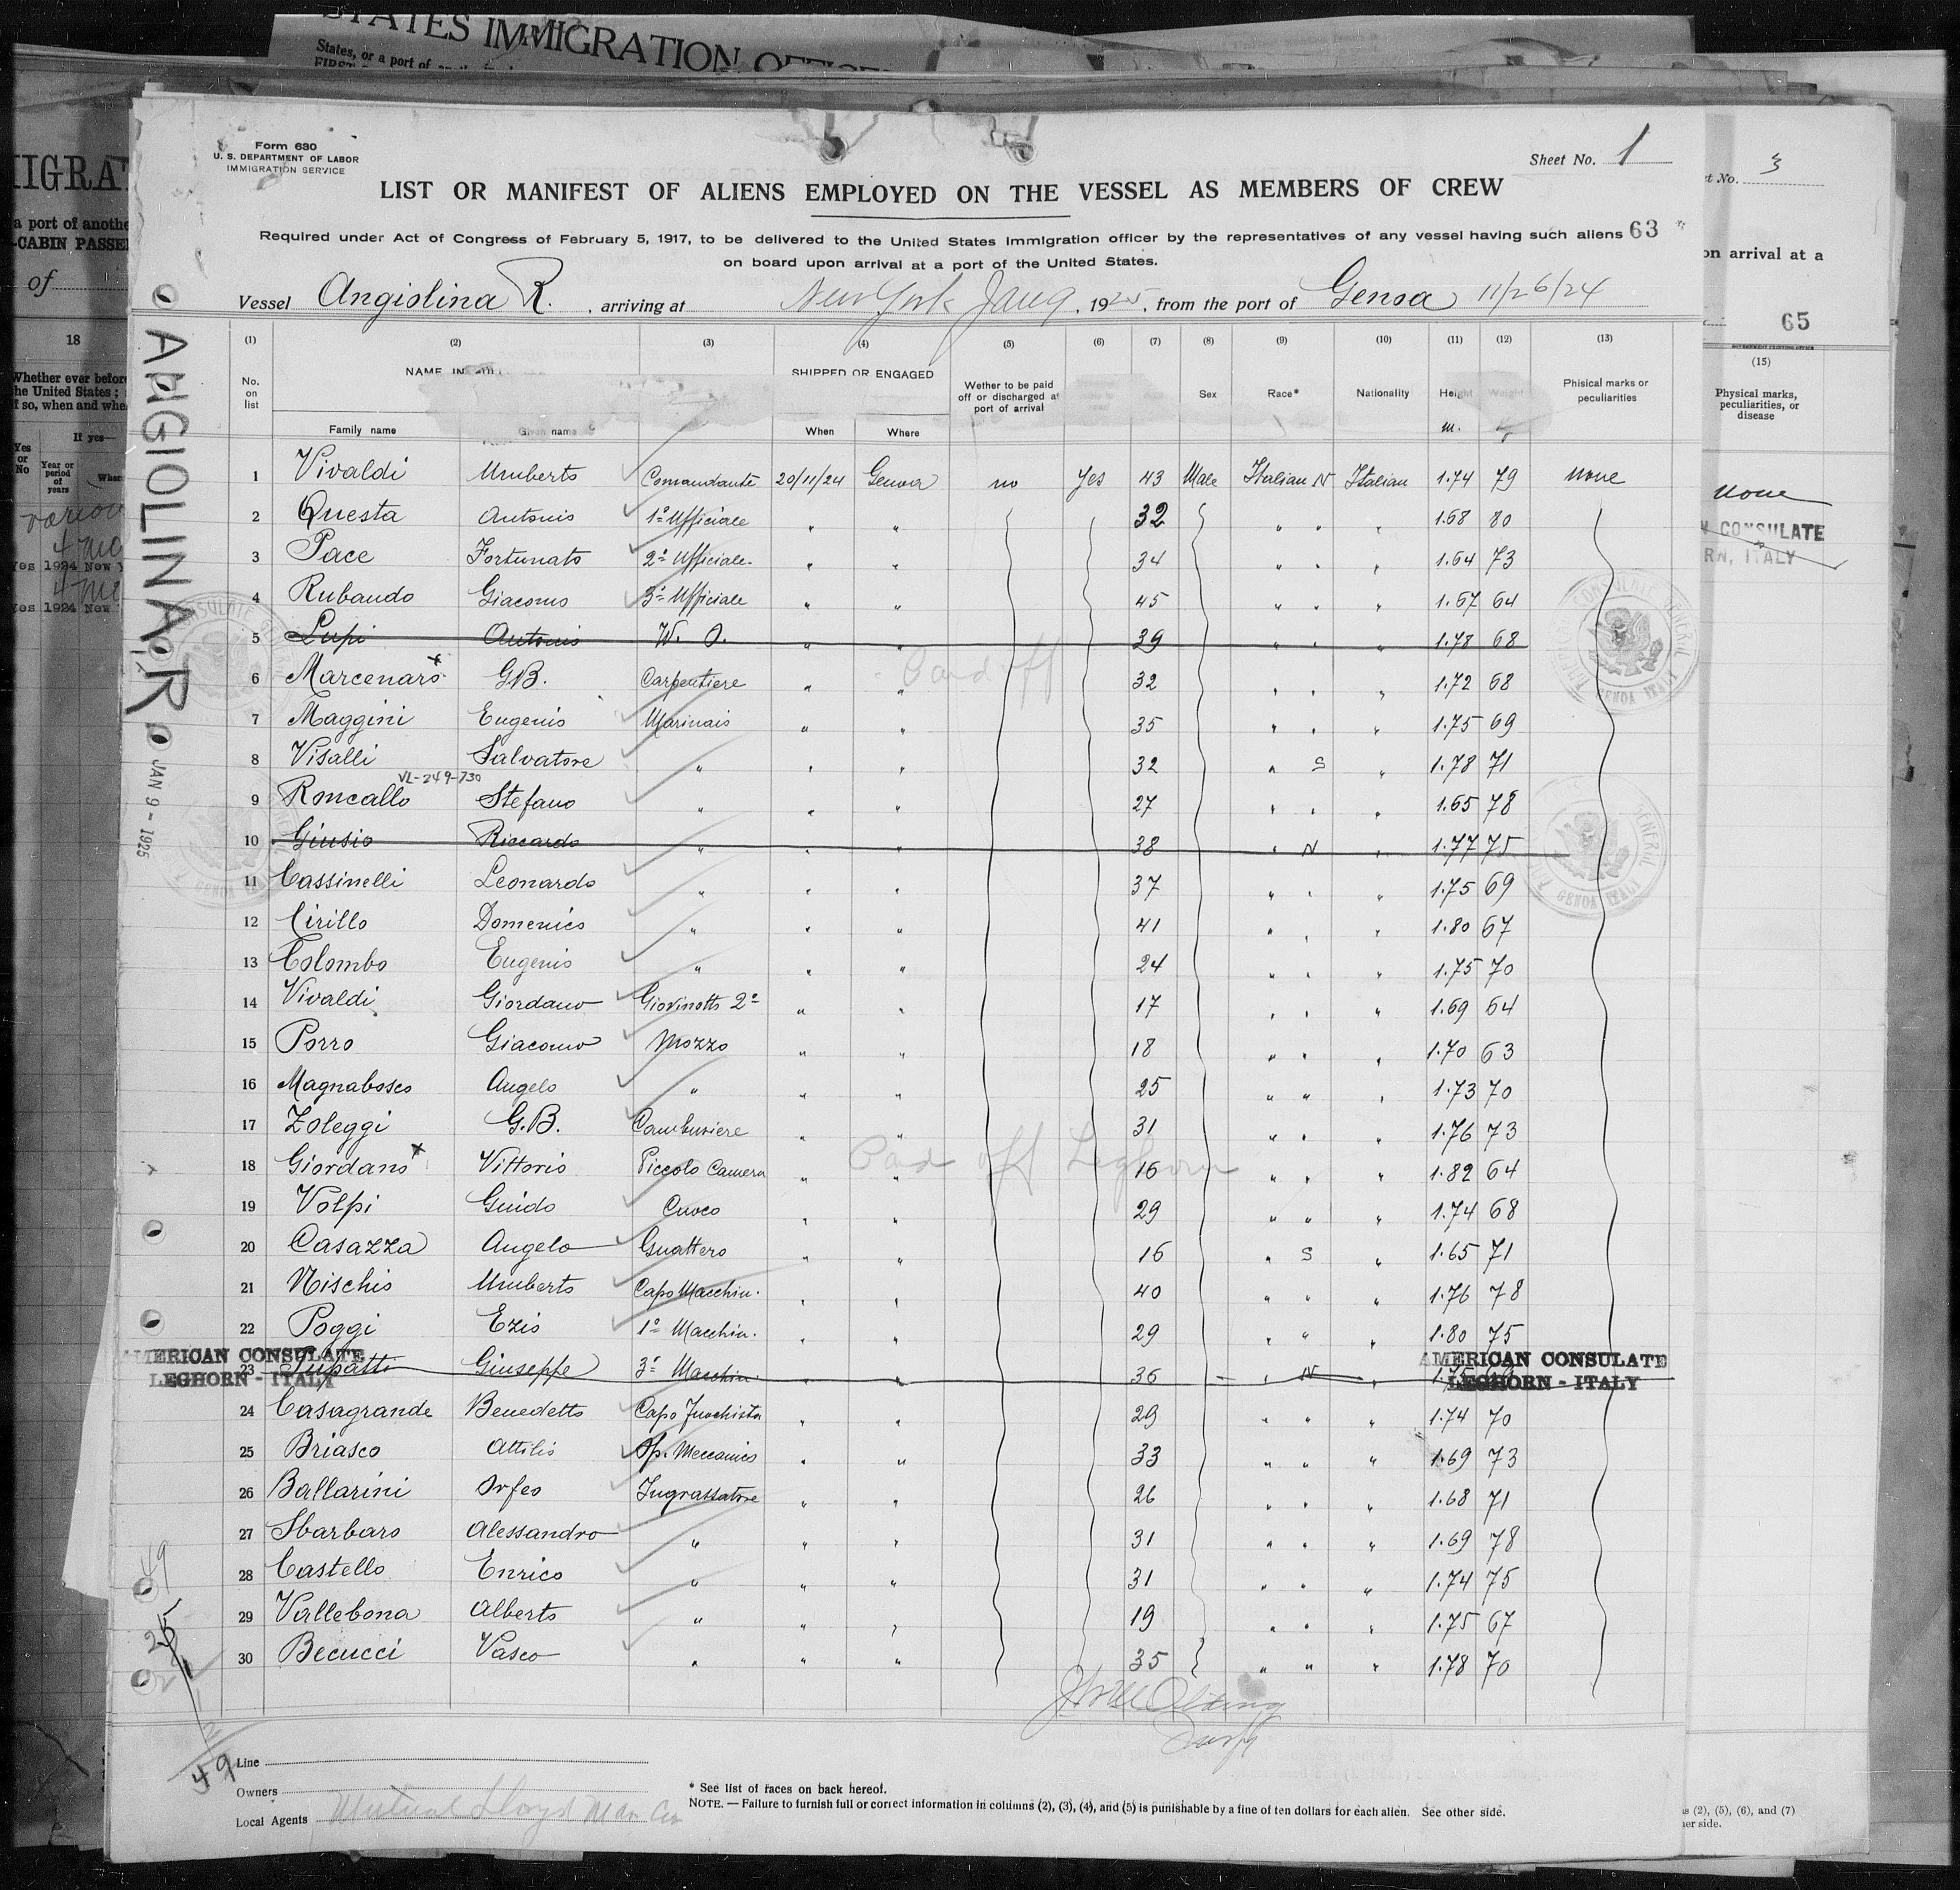 STATES IMMIGRATION OFFICE
States, or a port of
Form 630
U. S. DEPARTMENT OF LABOR
IMMIGRATION SERVICE
Sheet No. 1
LIST OR MANIFEST OF ALIENS EMPLOYED ON THE VESSEL AS MEMBERS OF CREW
Required under Act of Congress of February 5, 1917, to be delivered to the United States immigration officer by the representatives of any vessel having such aliens 63
on board upon arrival at a port of the United States.
Vessel Angiolina R. , arriving at New York Jan 9, 1925, from the port of Genoa 11/26/24
(1) (2) (3) (4) (5) (6) (7) (8) (9) (10) (11) (12) (13)
No. on list
NAME IN FULL
SHIPPED OR ENGAGED
Wether to be paid off or discharged at port of arrival
Sex Race* Nationality Height Weight
Phisical marks or peculiarities
Family name Given name When Where m.
1 Vivaldi Umberto Comandante 20/11/24 Genova no Yes 43 Male Italian N Italian 1.74 79 none
2 Questa Antonio 1º Ufficiale " " 32 " " " 1.68 80
3 Pace Fortunato 2º Ufficiale " " 34 " " " 1.64 73
4 Rubaudo Giacomo 3º Ufficiale " " 45 " " " 1.67 64
5 Lupi Antonio W. O. " " 39 " " " 1.78 68
6 Marcenaro x G.B. Carpentiere " " Paid off 32 " " " 1.72 68
7 Maggini Eugenio Marinaio " " 35 " " " 1.75 69
8 Visalli Salvatore " " " 32 " S " 1.78 71
VL-249-730
9 Roncallo Stefano " " " 27 " " " 1.65 78
10 Giusio Riccardo " " " 38 " N " 1.77 75
11 Cassinelli Leonardo " " " 37 " " " 1.75 69
12 Cirillo Domenico " " " 41 " " " 1.80 67
13 Colombo Eugenio " " " 24 " " " 1.75 70
14 Vivaldi Giordano Giovinotto 2º " " 17 " " " 1.69 64
15 Porro Giacomo Mozzo " " 18 " " " 1.70 63
16 Magnabosco Angelo " " " 25 " " " 1.73 70
17 Zoleggi G.B. Cambusiere " " 31 " " " 1.76 73
18 Giordano x Vittorio Piccolo Camera " " Paid off Leghorn 16 " " " 1.82 64
19 Volpi Guido Cuoco " " 29 " " " 1.74 68
20 Casazza Angelo Guattero " " 16 " S " 1.65 71
21 Nischio Umberto Capo Macchin. " " 40 " " " 1.76 78
22 Poggi Ezio 1º Macchin. " " 29 " " " 1.80 75
AMERICAN CONSULATE AMERICAN CONSULATE
23 Giuseppe 3º Macchin. " " 36 " N "
LEGHORN - ITALY LEGHORN - ITALY
24 Casagrande Benedetto Capo Fuochista " " 29 " " " 1.74 70
25 Briasco Attilio Op. Meccanico " " 33 " " " 1.69 73
26 Ballarini Orfeo Ingrassatore " " 26 " " " 1.68 71
27 Sbarbaro Alessandro " " " 31 " " " 1.69 78
28 Castello Enrico " " " 31 " " " 1.74 75
29 Vallebona Alberto " " " 19 " " " 1.75 67
30 Becucci Vasco " " " 35 " " " 1.78 70
Line
Owners
Local Agents
* See list of races on back hereof.
NOTE. — Failure to furnish full or correct information in columns (2), (3), (4), and (5) is punishable by a fine of ten dollars for each alien. See other side.
ANGIOLINA R
JAN 9 - 1925
49
25
49
IGRAT
a port of anothe
-CABIN PASSE
of
18
Whether ever before
the United States;
if so, when and whe
If yes—
Yes or No
Year or period of years
Wher
Yes 1924 New Y
Yes 1924 New
t No. 3
on arrival at a
65
(15)
Physical marks, peculiarities, or disease
none
CONSULATE
RN, ITALY
(2), (5), (6), and (7)
er side.